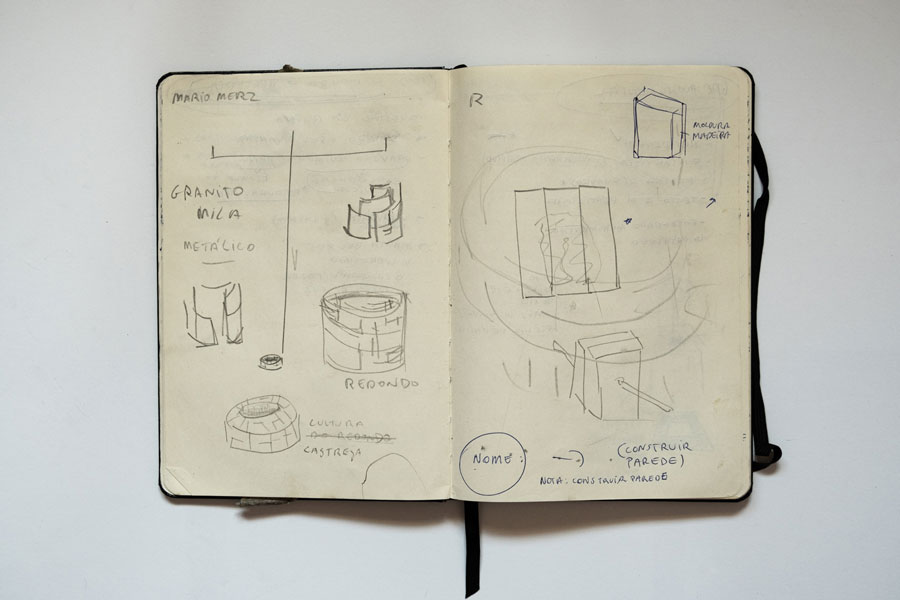 MARIO MERZ
GRANITO
MILA
METÁLICO
REDONDO
CULTURA
NO REDONDO
CASTREJA
R
MOLDURA
MADEIRA
NOME:
(CONSTRUIR
PAREDE)
NOTA: CONSTRUIR PAREDE